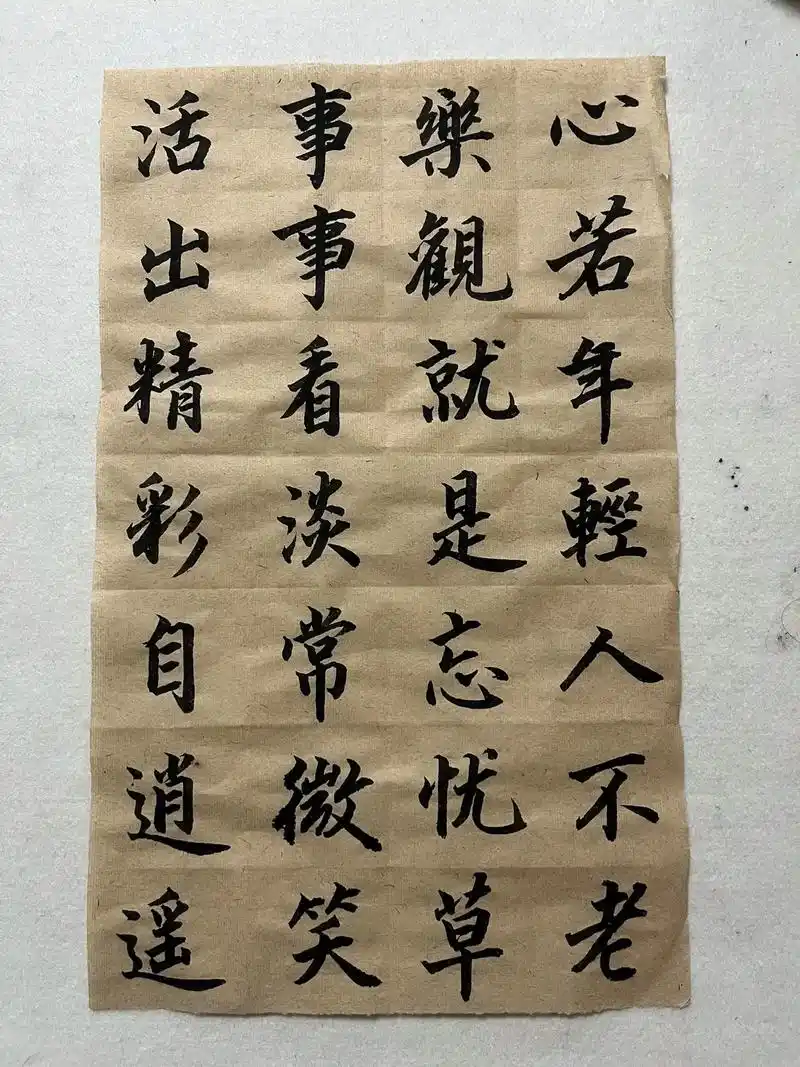 心若年輕人不老
樂觀就是忘忧草
事事看淡常微笑
活出精彩自逍遥